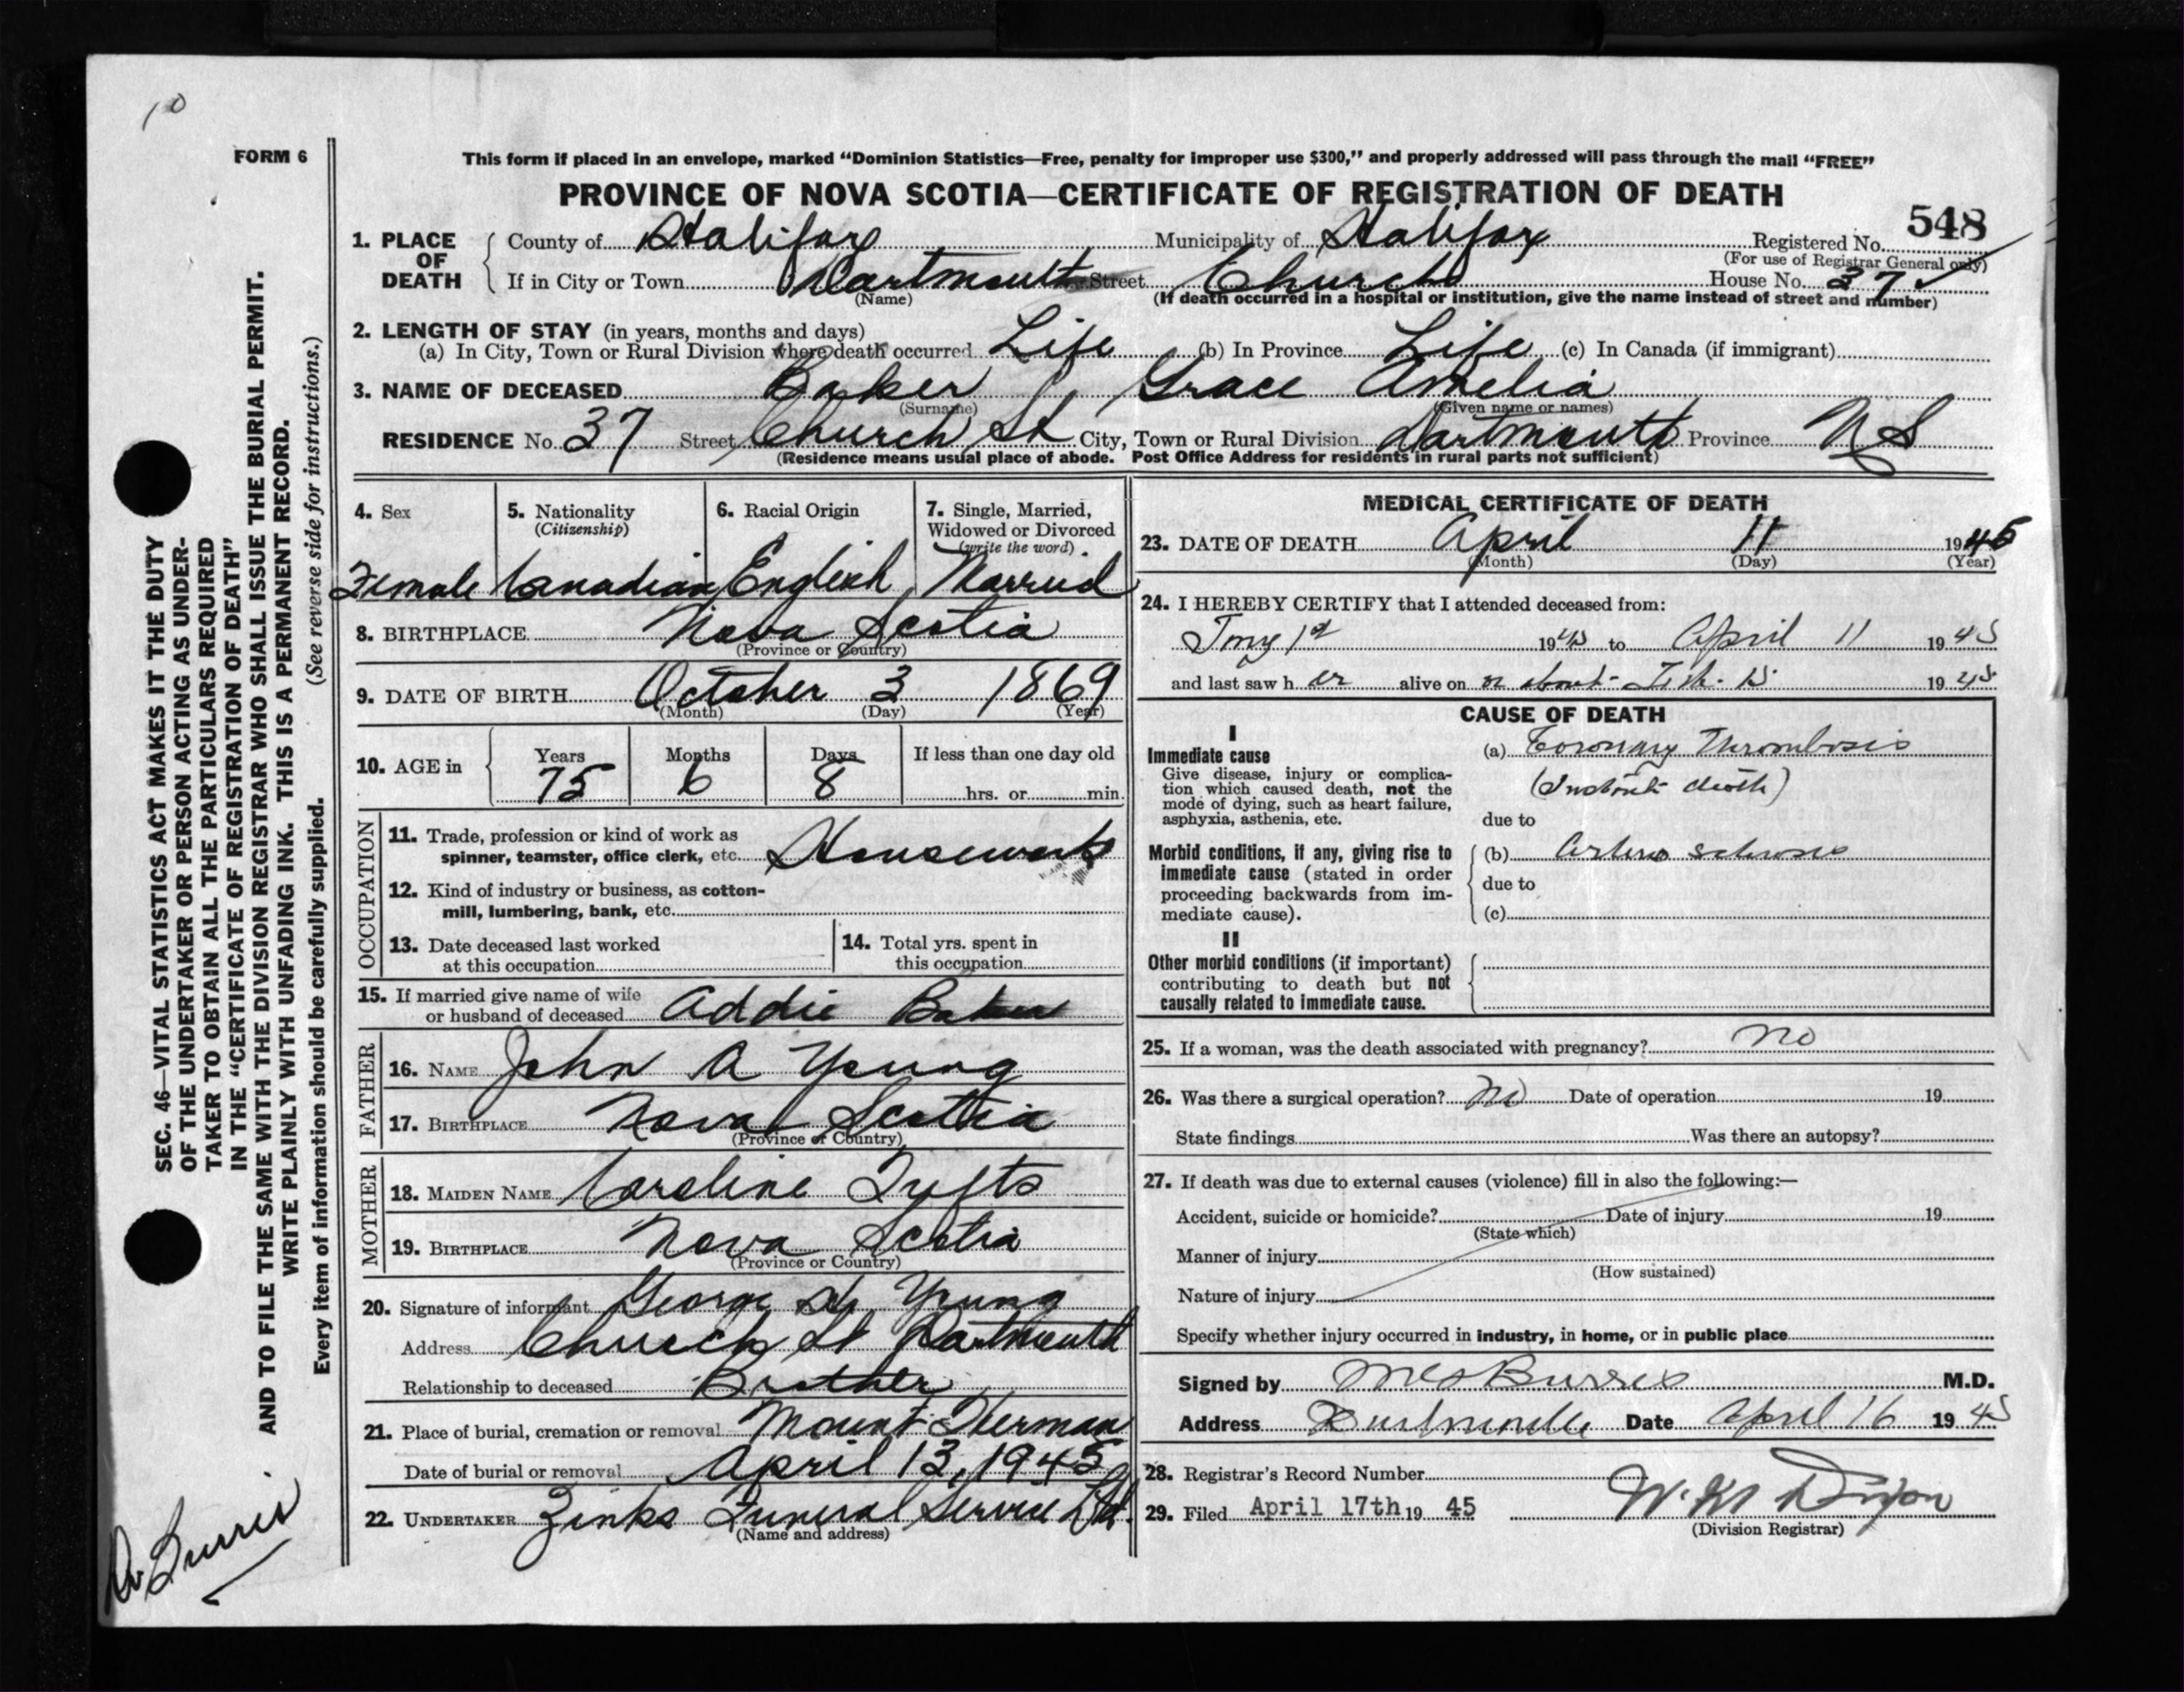 10
FORM 6
This form if placed in an envelope, marked “Dominion Statistics—Free, penalty for improper use $300,” and properly addressed will pass through the mail “FREE”
PROVINCE OF NOVA SCOTIA—CERTIFICATE OF REGISTRATION OF DEATH
548
1. PLACE OF DEATH { County of Halifax Municipality of Halifax Registered No.
(For use of Registrar General only)
If in City or Town Dartmouth Street Church House No. 37
(Name) (If death occurred in a hospital or institution, give the name instead of street and number)
2. LENGTH OF STAY (in years, months and days)
(a) In City, Town or Rural Division where death occurred Life (b) In Province Life (c) In Canada (if immigrant)
3. NAME OF DECEASED Baker, Grace Amelia
(Surname) (Given name or names)
RESIDENCE No. 37 Street Church St City, Town or Rural Division Dartmouth Province N S
(Residence means usual place of abode. Post Office Address for residents in rural parts not sufficient)
4. Sex 5. Nationality 6. Racial Origin 7. Single, Married,
(Citizenship) Widowed or Divorced
(write the word)
Female Canadian English Married
8. BIRTHPLACE Nova Scotia
(Province or Country)
9. DATE OF BIRTH October 3 1869
(Month) (Day) (Year)
10. AGE in { Years Months Days If less than one day old
75 6 8 hrs. or min.
OCCUPATION
11. Trade, profession or kind of work as
spinner, teamster, office clerk, etc. Housework
12. Kind of industry or business, as cotton-
mill, lumbering, bank, etc.
13. Date deceased last worked 14. Total yrs. spent in
at this occupation this occupation
15. If married give name of wife
or husband of deceased Addie Baker
FATHER
16. NAME John A Young
17. BIRTHPLACE Nova Scotia
(Province or Country)
MOTHER
18. MAIDEN NAME Caroline Tufts
19. BIRTHPLACE Nova Scotia
(Province or Country)
20. Signature of informant George Young
Address Church St Dartmouth
Relationship to deceased Brother
21. Place of burial, cremation or removal Mount Herman
Date of burial or removal April 13, 1945
22. UNDERTAKER Zinks Funeral Service Ltd.
(Name and address)
MEDICAL CERTIFICATE OF DEATH
23. DATE OF DEATH April 11 1945
(Month) (Day) (Year)
24. I HEREBY CERTIFY that I attended deceased from:
1st 1945 to April 11 1945
and last saw h er alive on or about 1945
CAUSE OF DEATH
I
Immediate cause (a) Coronary Thrombosis
Give disease, injury or complica-
tion which caused death, not the
mode of dying, such as heart failure,
asphyxia, asthenia, etc.
(Instant death)
due to
Morbid conditions, if any, giving rise to
immediate cause (stated in order
proceeding backwards from im-
mediate cause).
(b) Arterio sclerosis
due to
(c)
II
Other morbid conditions (if important)
contributing to death but not
causally related to immediate cause.
25. If a woman, was the death associated with pregnancy? No
26. Was there a surgical operation? No Date of operation 19
State findings Was there an autopsy?
27. If death was due to external causes (violence) fill in also the following:—
Accident, suicide or homicide? Date of injury 19
(State which)
Manner of injury
(How sustained)
Nature of injury
Specify whether injury occurred in industry, in home, or in public place
Signed by Burris M.D.
Address Dartmouth Date April 16 1945
28. Registrar's Record Number
29. Filed April 17th 19 45 W. Dixon
(Division Registrar)
SEC. 46—VITAL STATISTICS ACT MAKES IT THE DUTY
OF THE UNDERTAKER OR PERSON ACTING AS UNDER-
TAKER TO OBTAIN ALL THE PARTICULARS REQUIRED
IN THE “CERTIFICATE OF REGISTRATION OF DEATH”
AND TO FILE THE SAME WITH THE DIVISION REGISTRAR WHO SHALL ISSUE THE BURIAL PERMIT.
WRITE PLAINLY WITH UNFADING INK. THIS IS A PERMANENT RECORD.
Every item of information should be carefully supplied. (See reverse side for instructions.)
Dr Burris